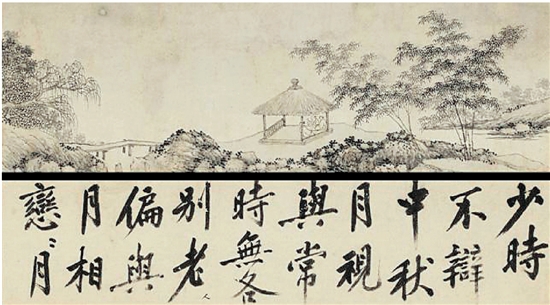 少時
不辯
中秋
月視
與常
時無各
別老人
偏與
月相
戀〻月